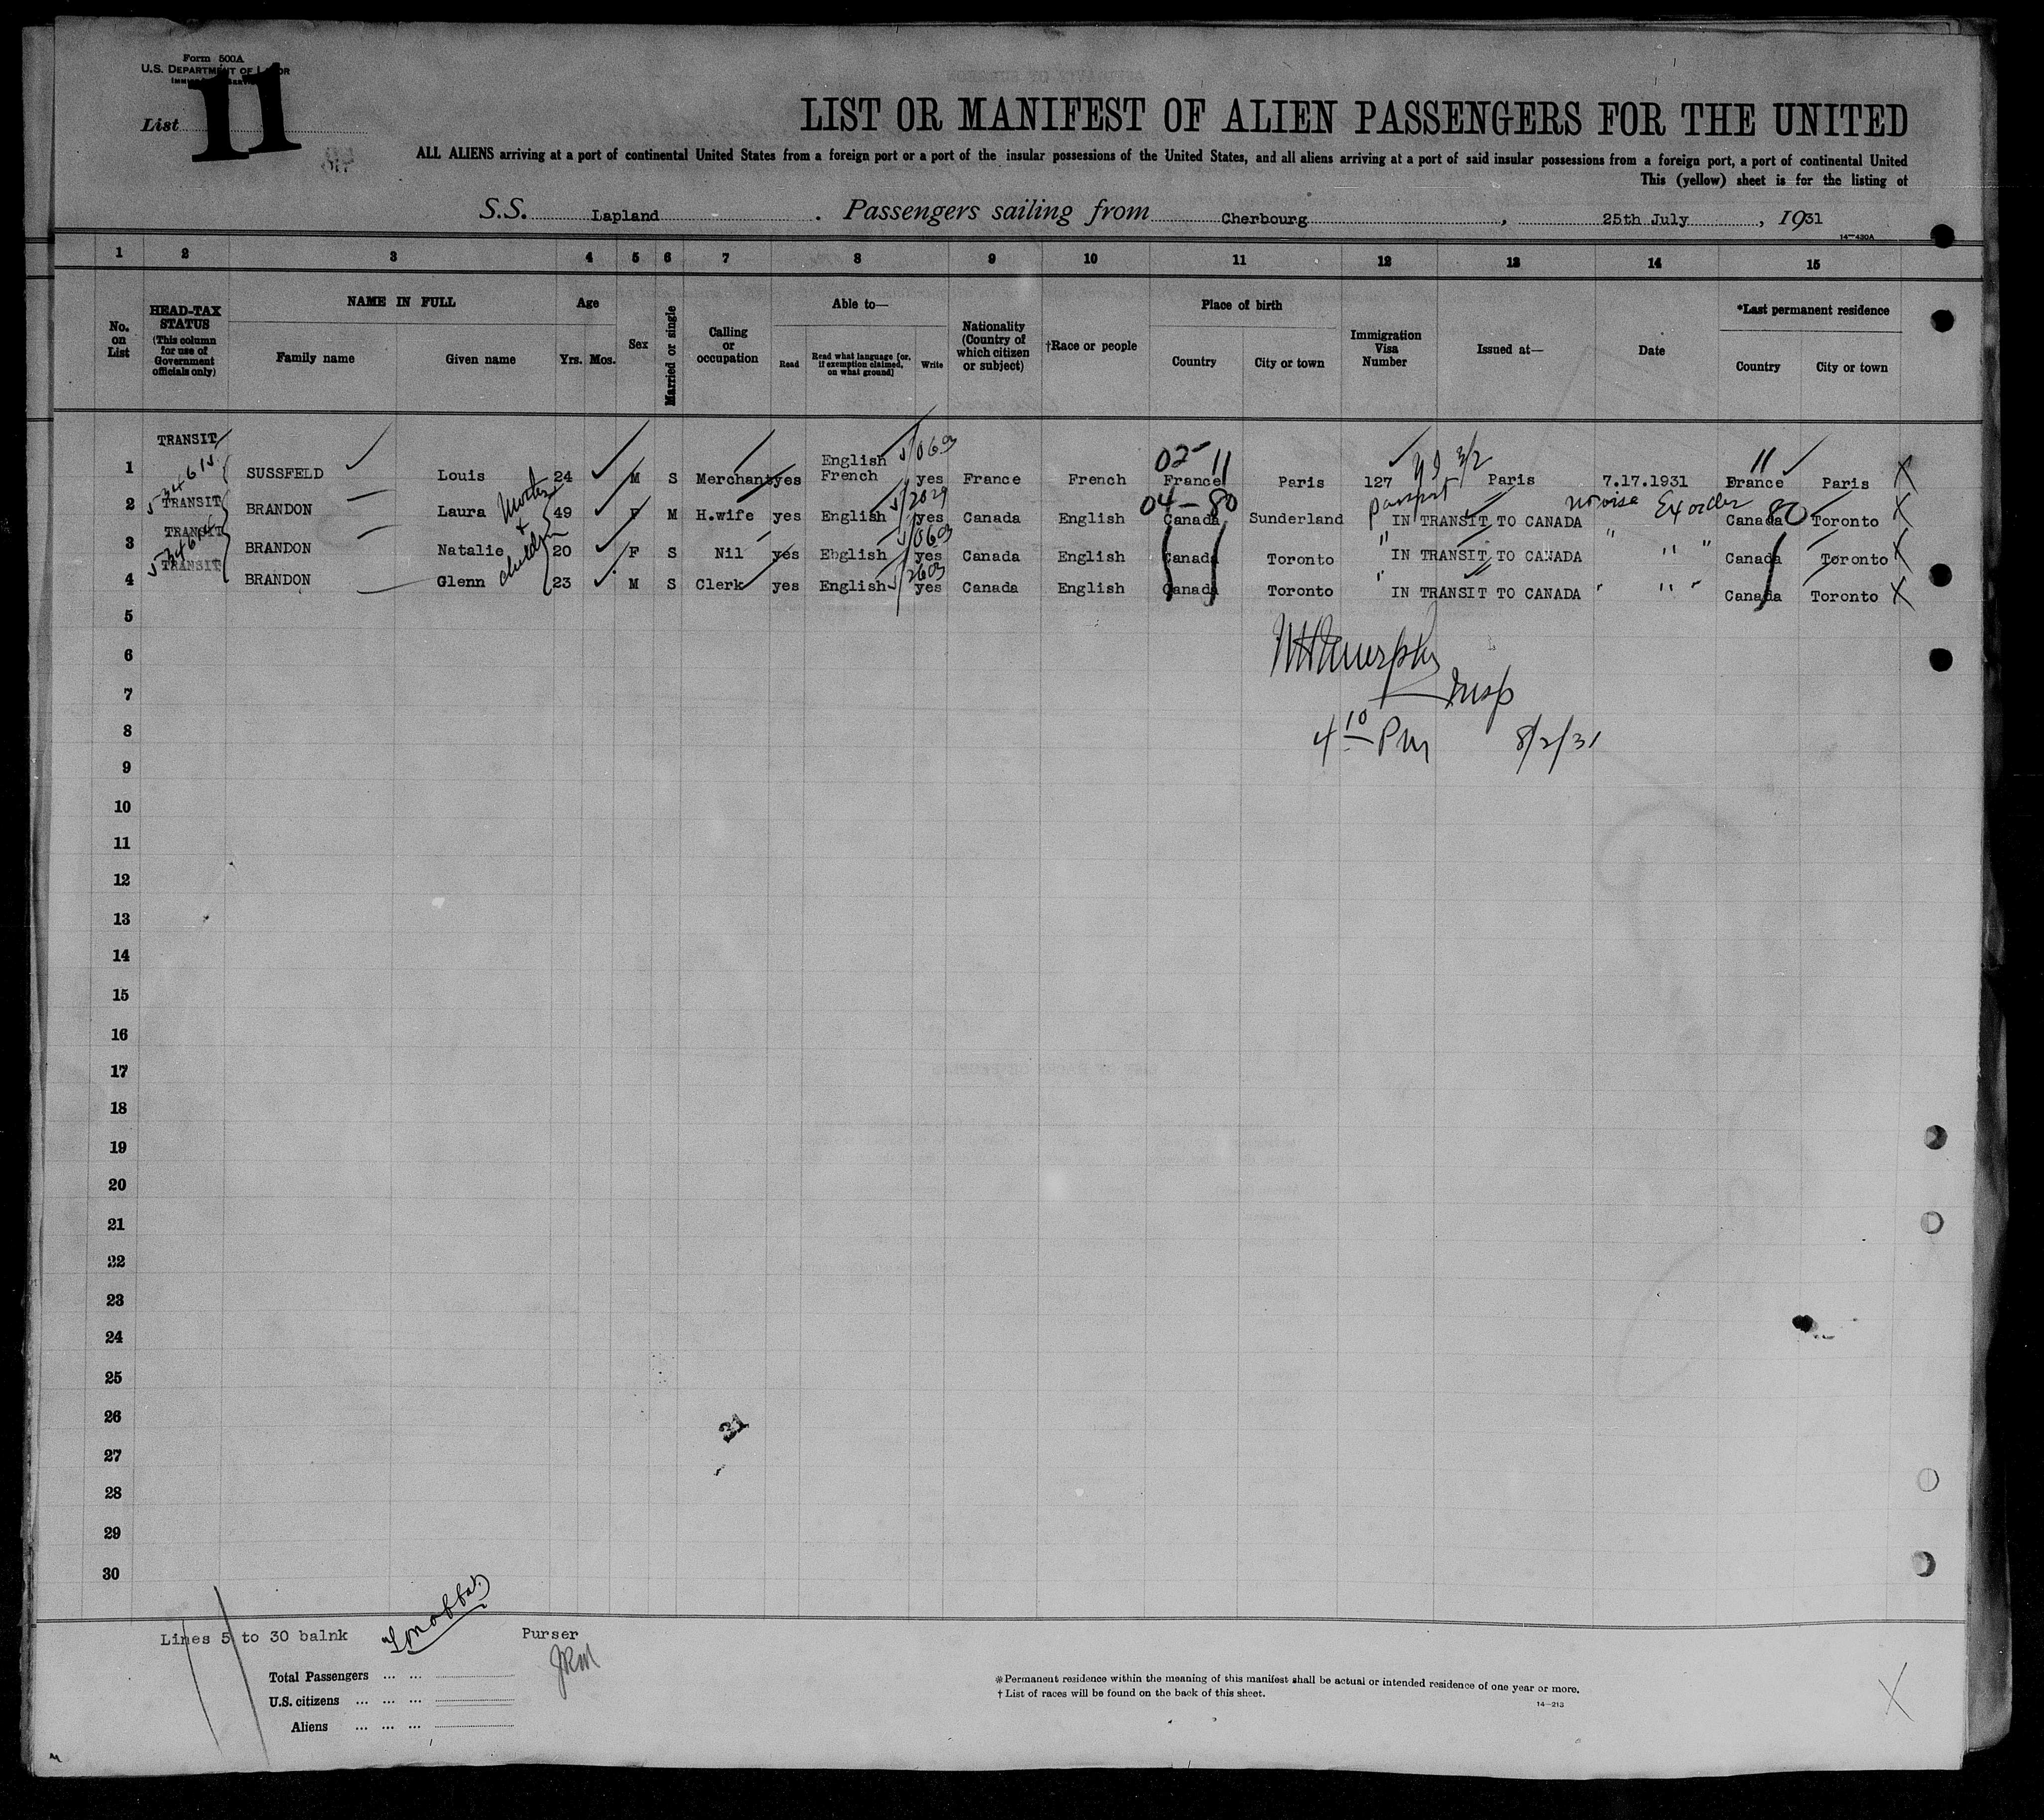 Form 500A
U.S. DEPARTMENT OF LABOR
List 11
LIST OR MANIFEST OF ALIEN PASSENGERS FOR THE UNITED
ALL ALIENS arriving at a port of continental United States from a foreign port or a port of the insular possessions of the United States, and all aliens arriving at a port of said insular possessions from a foreign port, a port of continental United
This (yellow) sheet is for the listing of
S.S. Lapland . Passengers sailing from Cherbourg , 25th July , 1931
14-430A
1 2 3 4 5 6 7 8 9 10 11 12 13 14 15
No. on List
HEAD-TAX STATUS (This column for use of Government officials only)
NAME IN FULL
Family name
Given name
Age
Yrs. Mos.
Sex
Married or single
Calling or occupation
Able to—
Read
Read what language [or, if exemption claimed, on what ground]
Write
Nationality (Country of which citizen or subject)
†Race or people
Place of birth
Country
City or town
Immigration Visa Number
Issued at—
Date
*Last permanent residence
Country
City or town
1 TRANSIT SUSSFELD Louis 24 M S Merchant yes English French yes France French 02- 11 France Paris 127 Paris 7.17.1931 11 France Paris X
2 TRANSIT BRANDON Laura 49 F M H.wife yes English yes Canada English 04-80 Canada Sunderland passport IN TRANSIT TO CANADA no visa Ex order Canada 80 Toronto X
3 TRANSIT BRANDON Natalie 20 F S Nil yes Ebglish yes Canada English Canada Toronto " IN TRANSIT TO CANADA " " " Canada Toronto X
4 TRANSIT BRANDON Glenn 23 M S Clerk yes English yes Canada English Canada Toronto " IN TRANSIT TO CANADA " " " Canada Toronto X
Mother + children
5
6
WHMurphy
7
Insp
8
4 10 PM 8/2/31
9
10
11
12
13
14
15
16
17
18
19
20
21
22
23
24
25
26
31
27
28
29
30
Lines 5 to 30 balnk
Purser
JRM
Total Passengers ... ...
U.S. citizens ... ... ...
Aliens ... ... ...
*Permanent residence within the meaning of this manifest shall be actual or intended residence of one year or more.
†List of races will be found on the back of this sheet.
14-213
X